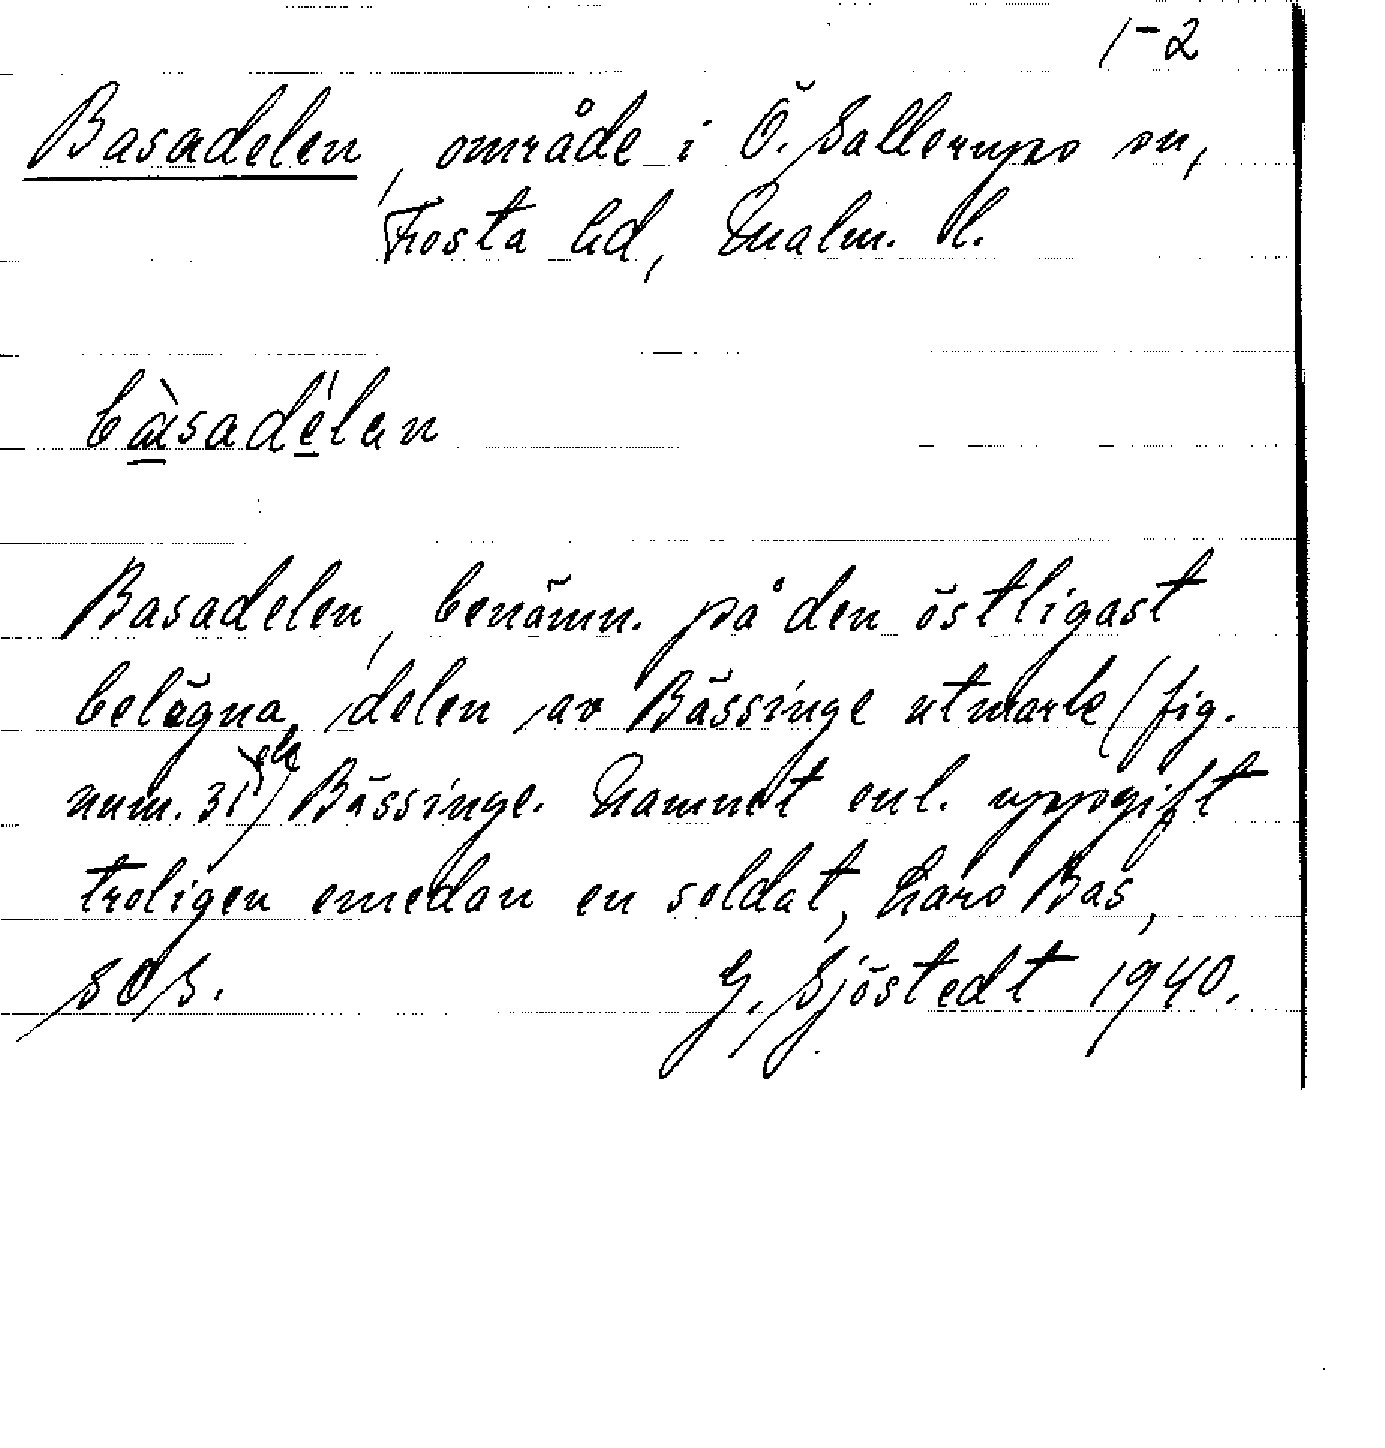 1-2
Basadelen, område i Ö. Sallerups sn,
Frosta hd, Malm. l.
bàsadélan
Basadelen, benämn. på den östligast
belägna delen av Bässinge utmark (fig.
num. 31) Bässinge. Namnet enl. uppgift
troligen emedan en soldat, Lars Bas,
G. Sjöstedt 1940.